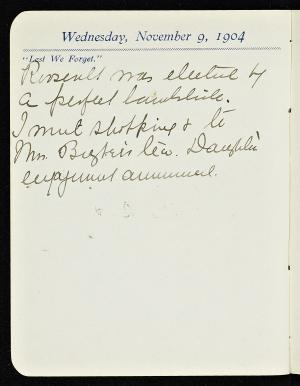 Wednesday, November 9, 1904
"Lest We Forget."
Roosevelt was elected by
a perfect landslide.
I went shopping & to
Mrs. tea. Daughter's
engagement announced.